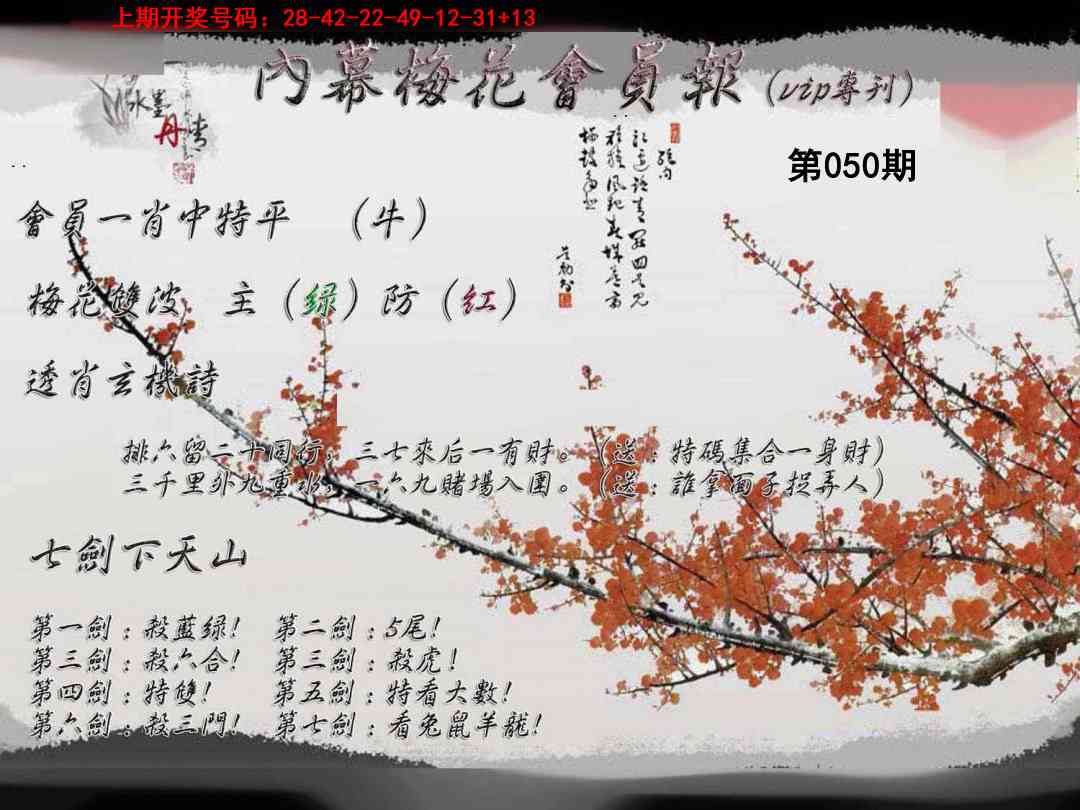 上期开奖号码：28-42-22-49-12-31+13
內幕梅花會員報（vip專刊）
水墨
丹青
第050期
會員一肖中特平 （牛）
梅花雙波 主（绿）防（红）
透肖玄機詩
排六留二十同行，三七來后一有財。（送：特碼集合一身財）
三千里外九重水，一六九賭場入圍。（送：誰拿面子捉弄人）
七劍下天山
第一劍：殺藍绿！ 第二劍：5尾！
第三劍：殺六合！ 第三劍：殺虎！
第四劍：特雙！ 第五劍：特看大數！
第六劍：殺三門！ 第七劍：看兔鼠羊龍！